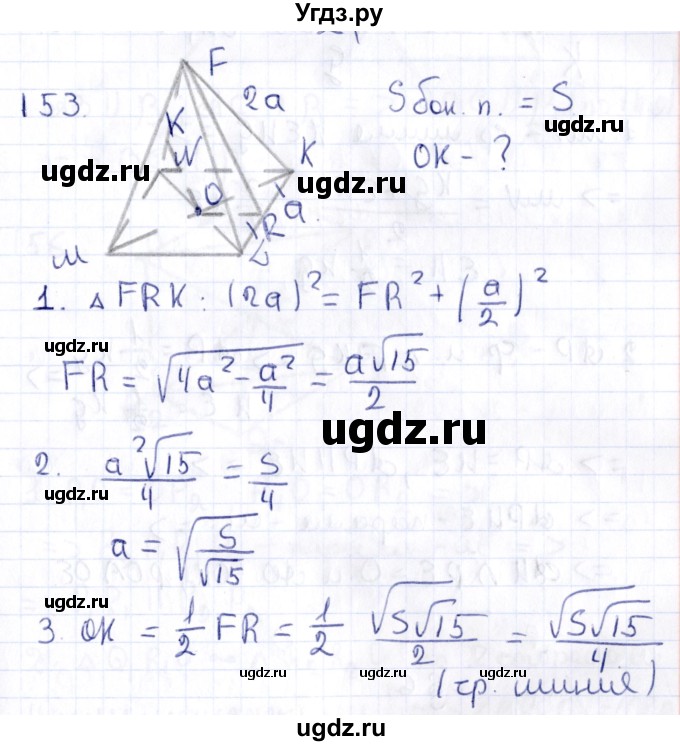 Угдз.ру
153.
F
2a
Sбок. п. = S
K
N
K
OK - ?
ugdz.ru
ugdz.ru
O
a
R
M
L
1. △ FRK : (2a)² = FR² + (a/2)²
ugdz.ru
FR = √(4a² - a²/4) = a√15/2
ugdz.ru
ugdz.ru
2. a²√15/4 = S/4
ugdz.ru
a = √(S/√15)
ugdz.ru
ugdz.ru
3. OK = 1/2 FR = 1/2 √(S√15)/2 = √(S√15)/4
ugdz.ru
ugdz.ru
(ср. линия)
ugdz.ru